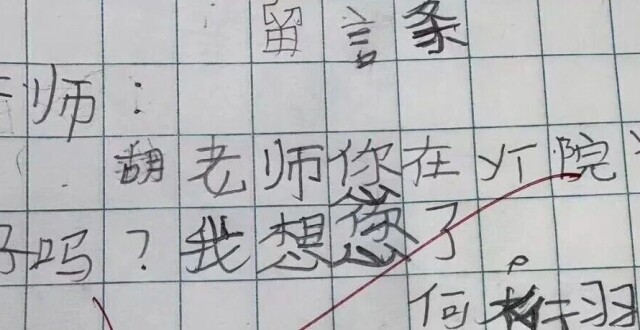 留言条
师：
胡老师您在院
吗？我想您了。
何羽